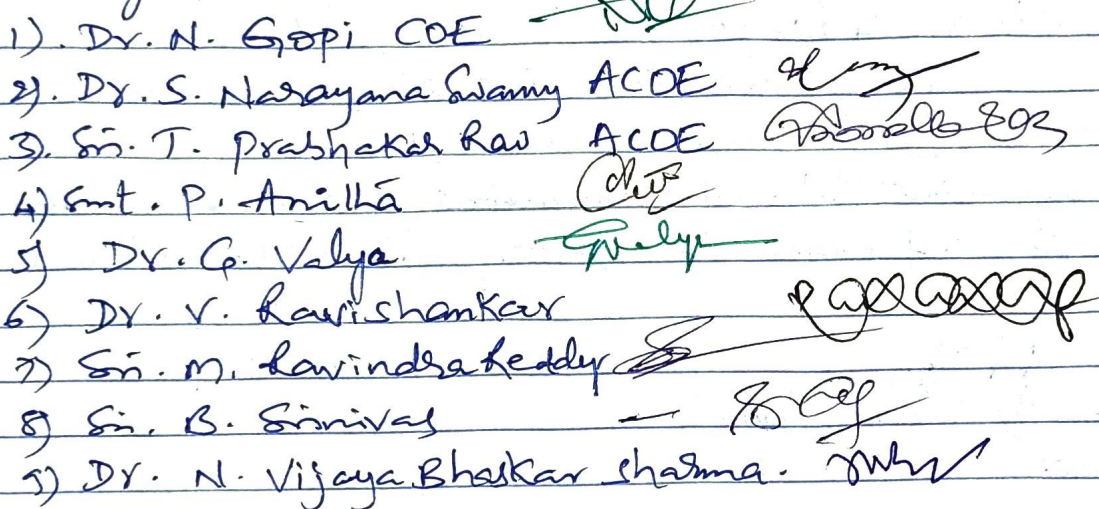 1). Dr. N. Gopi COE
2). Dr. S. Narayana Swamy ACOE
3). Sri. T. Prabhakar Rao ACOE
4) Smt. P. Anitha
5) Dr. G. Valya
6) Dr. V. Ravishankar
7) Sri. M. Ravindra Reddy
8) Sri. B. Srinivas -
9) Dr. N. Vijaya Bhaskar Sharma.